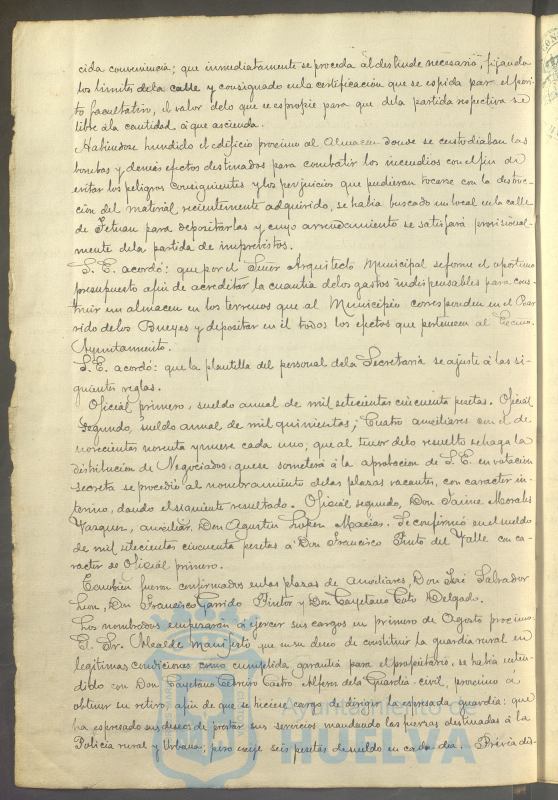 cida convenencia; que inmediatamente se proceda al deslinde necesario, fijando
los limites de la calle y consignado en la certificación que se espida por el peri-
to facultativo, el valor de lo que se espropie para que de la partida respectiva se
libre ála cantidad á que ascienda.
Habiendose hundido el edificio procsimo al almacen donde se custodiaban las
bombas y demás efectos destinados para combatir los incendios con el fin de
evitar los peligros consiguientes y los perjuicios que pudieran tocarse con la destruc-
ción del material recientemente adquirido, se habia buscado un local en la calle
de Tetuan para depositarlas y cuyo arrendamiento se satisfará provisional-
mente dela partida de imprevistos.
S. E. acordó: que por el Señor Arquitecto Municipal se forme el oportuno
presupuesto afin de acreditar la cuantia delos gastos indispensables para cons-
truir un almacen en los terrenos que al Municipio corresponden en el Bar-
rido delos Bueyes y depositar en él todos los efectos que pertenecen al Escmo.
Ayuntamiento.
S. E. acordó: que la plantilla del personal dela Secretaria se ajuste á las si-
guientes reglas.
Oficial primero, sueldo anual de mil setecientas cincuenta pesetas. Oficial
segundo, sueldo anual de mil quinientas; Cuatro auxiliares con el de
novecientas noventa y nueve cada uno; que al tenor delo resuelto se haga la
distribución de Negociados, que se someterá á la aprobacion de S. E. en votación
secreta se procedió al nombramiento delas plazas vacantes, con caracter in-
terino, dando el siguiente resultado. Oficial segundo, Don Jaime Morales
Vazquez, auxiliar, Don Agustin Macias. Se confirmó en el sueldo
de mil setecientas cincuenta pesetas á Don Francisco Pinto del Valle con ca-
racter de Oficial primero.
Tambien fueron confirmados en las plazas de auxiliares, Don José Salvador
Leon, Don Francisco Garrido Pintor y Don Cayetano Soto Delgado.
Los nombrados empezarán á ejercer sus cargos en primero de Agosto procsimo.
El Sr. Alcalde manifestó que en su deseo de constituir la guardia rural en
legitimas condiciones como cumplida garantia para el propietario, se habia enten-
dido con Don Cayetano Castro Alferez dela Guardia civil, procsimo á
obtener su retiro, afin de que se hiciera cargo de dirigir la espresada guardia; que
ha espresado sus deseos de prestar sus servicios mandando las fuerzas destinadas á la
Policia rural y Urbana; pero exije seis pesetas de sueldo en cada dia. Prévia dis-
Ayuntamiento de
HUELVA